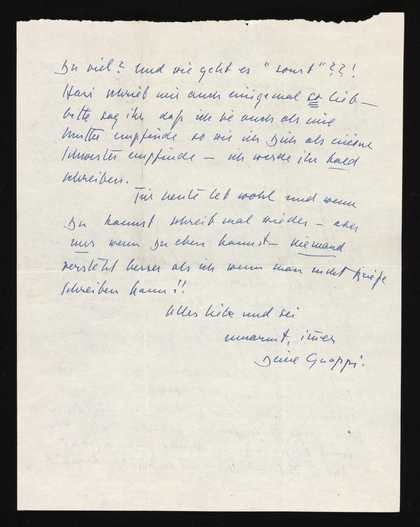 Du viel? Und wie geht es "sonst"??!
Hari schrieb mir auch einigemal so lieb –
bitte sag ihr daß ich sie auch als eine
Mutter empfinde so wie ich Dich als meine
Schwester empfinde – ich werde ihr bald
schreiben.
Für heute leb wohl und wenn
Du kannst schreib mal wieder – aber
nur wenn Du eben kannst – niemand
versteht besser als ich wenn man nicht Briefe
schreiben kann!!
Alles Liebe und sei
umarmt, immer
Deine Guappi.